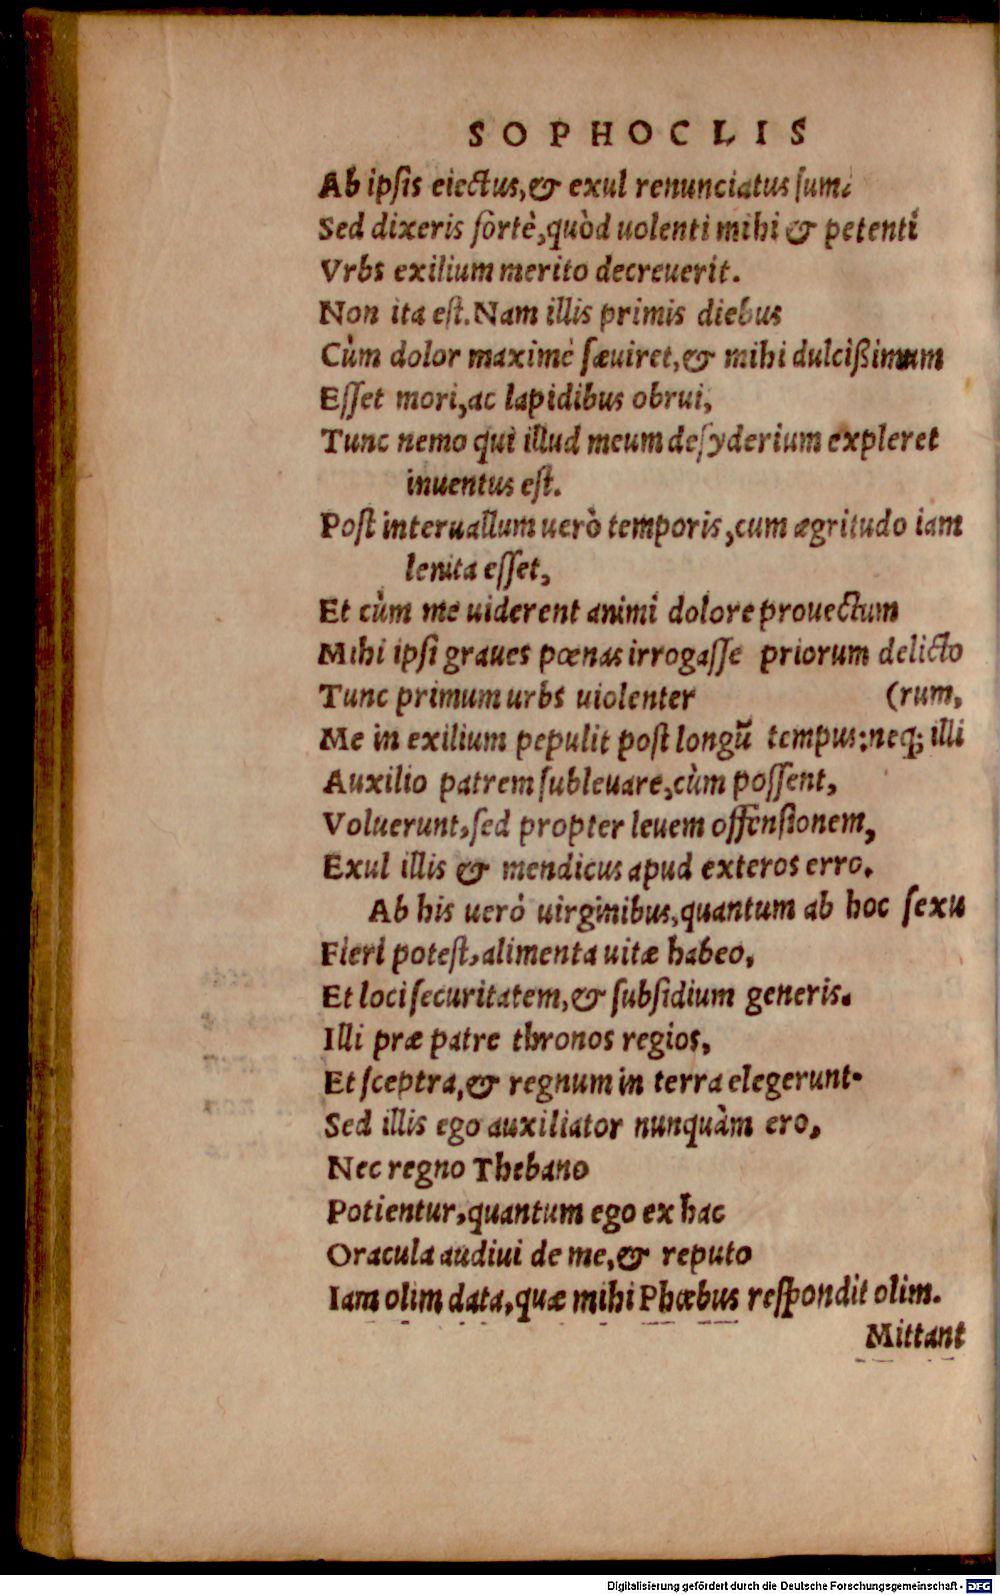 SOPHOCLIS
Ab ipsis eiectus, & exul renunciatus sum.
Sed dixeris fortè, quòd uolenti mihi & petenti
Vrbs exilium merito decreuerit.
Non ita est. Nam illis primis diebus
Cùm dolor maximè sæuiret, & mihi dulcißimum
Esset mori, ac lapidibus obrui,
Tunc nemo qui illud meum desyderium expleret
inuentus est.
Post interuallum uerò temporis, cum ægritudo iam
lenita esset,
Et cùm me uiderent animi dolore prouectum
Mihi ipsi graues pœnas irrogasse priorum delicto
Tunc primum urbs uiolenter (rum,
Me in exilium pepulit post longũ tempus: neq; illi
Auxilio patrem subleuare, cùm possent,
Voluerunt, sed propter leuem offensionem,
Exul illis & mendicus apud exteros erro.
Ab his uerò uirginibus, quantum ab hoc sexu
Fieri potest, alimenta uitæ habeo,
Et loci securitatem, & subsidium generis.
Illi præ patre thronos regios,
Et sceptra, & regnum in terra elegerunt.
Sed illis ego auxiliator nunquàm ero,
Nec regno Thebano
Potientur, quantum ego ex hac
Oracula audiui de me, & reputo
Iam olim data, quæ mihi Phœbus respondit olim.
Mittant
Digitalisierung gefördert durch die Deutsche Forschungsgemeinschaft - DFG